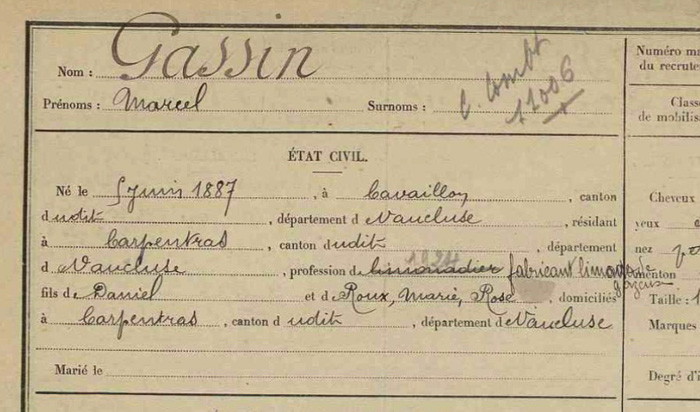 Nom : Gassin
Numéro ma
du recrute
Prénoms : Marcel Surnoms : C. Combt 11006
Class
de mobilis
ÉTAT CIVIL.
Né le 5 juin 1887, à Cavaillon, canton
Cheveux
dudit, département d Vaucluse, résidant
yeux
à Carpentras, canton dudit, département
nez
d Vaucluse, profession de limonadier fabricant limonade gazeuse
menton
fils de Daniel et de Roux, Marie, Rose, domiciliés
Taille : 1
à Carpentras, canton dudit, département d Vaucluse
Marques
Marié le
Degré d'i